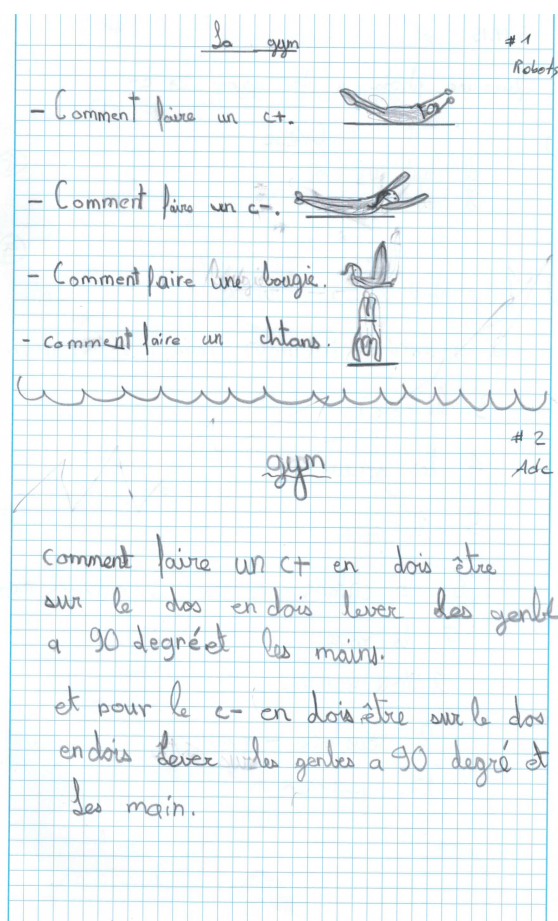 La gym
#1
Robots
- Comment faire un c+.
- Comment faire un c-.
- Comment faire une bougie.
- comment faire un chtans.
#2
Adc
gym
comment faire un c+ en dois être
sur le dos en dois lever les genbe
a 90 degré et les mains.
et pour le c- en dois être sur le dos
en dois lever les genbes a 90 degré et
les main.